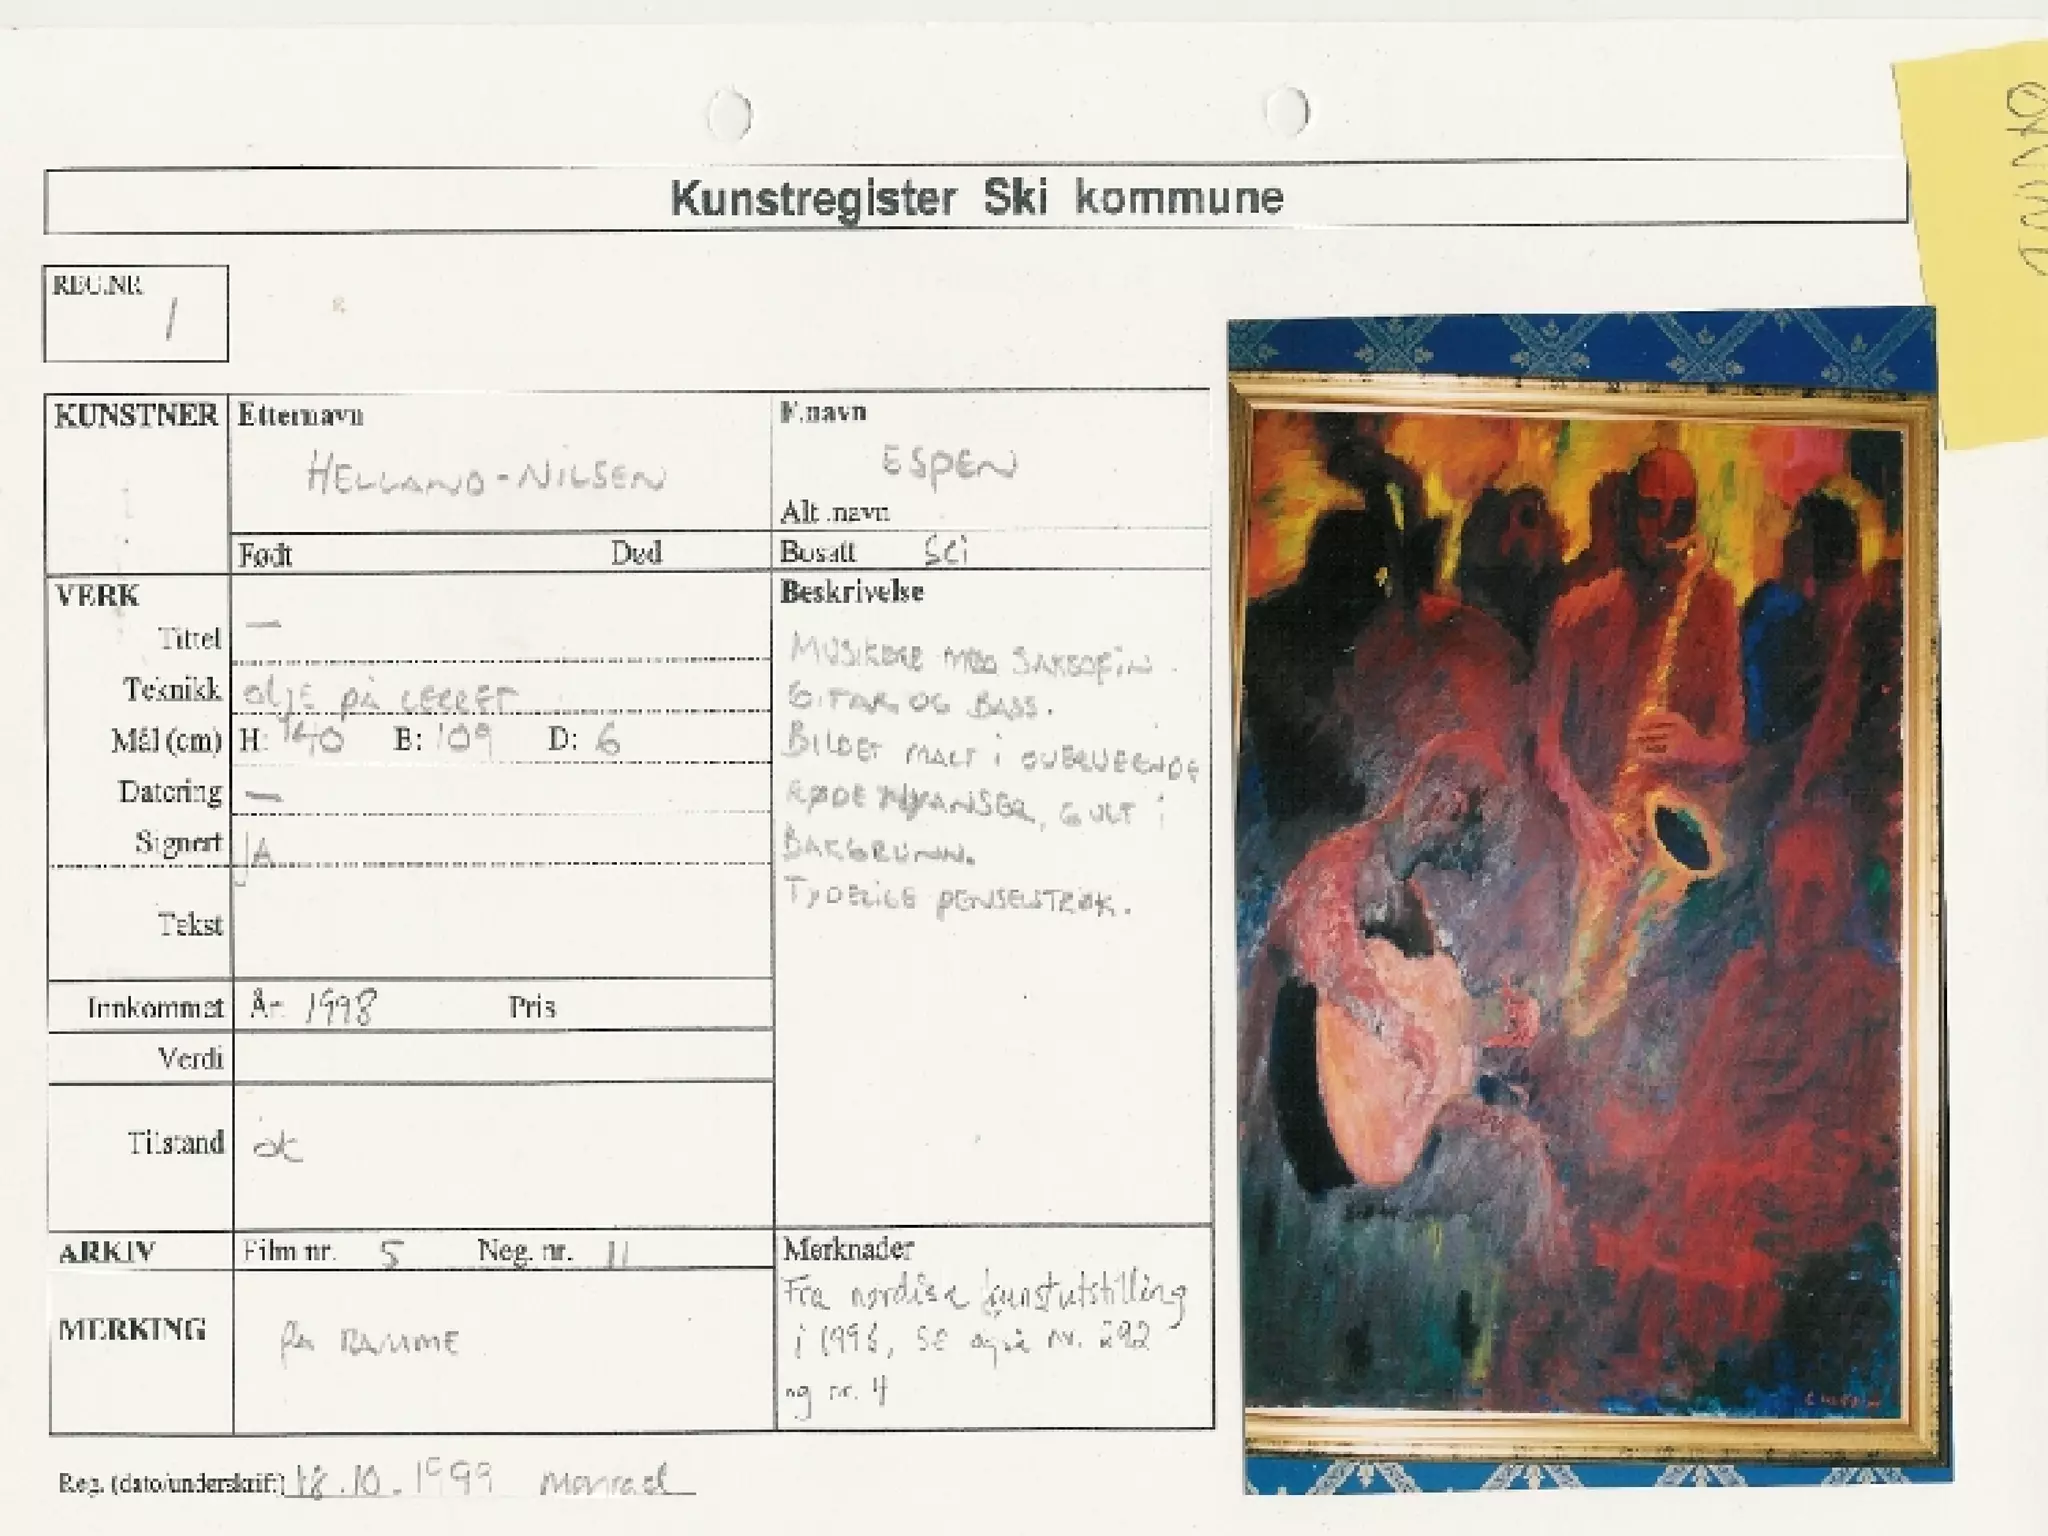 Kunstregister Ski kommune
REG.NR
1
KUNSTNER
Etternavn
HELLAND-NILSEN
F.navn
ESPEN
Alt .navn
Født Død
Bosatt SKi
VERK
Tittel —
Teknikk OLJE på LERRET
Mål (cm) H: 140 B: 109 D: 6
Datering —
Signert JA
Tekst
Beskrivelse
MUSIKERE MED SAKSOFON.
GITAR OG BASS.
BILDET MALT i OVERVEENDE
RØDE NYANSER, GULT i
BAKGRUNN.
TYDELIGE PENSELSTRØK.
Innkommet År: 1998 Pris
Verdi
Tilstand ok
ARKIV Film nr. 5 Neg. nr. 11
MERKING På RAMME
Merknader
Fra nordisk kunstutstilling
i 1996, se også nr. 292
og nr. 4
Reg. (dato/underskrift) 18.10.1999 Monrad